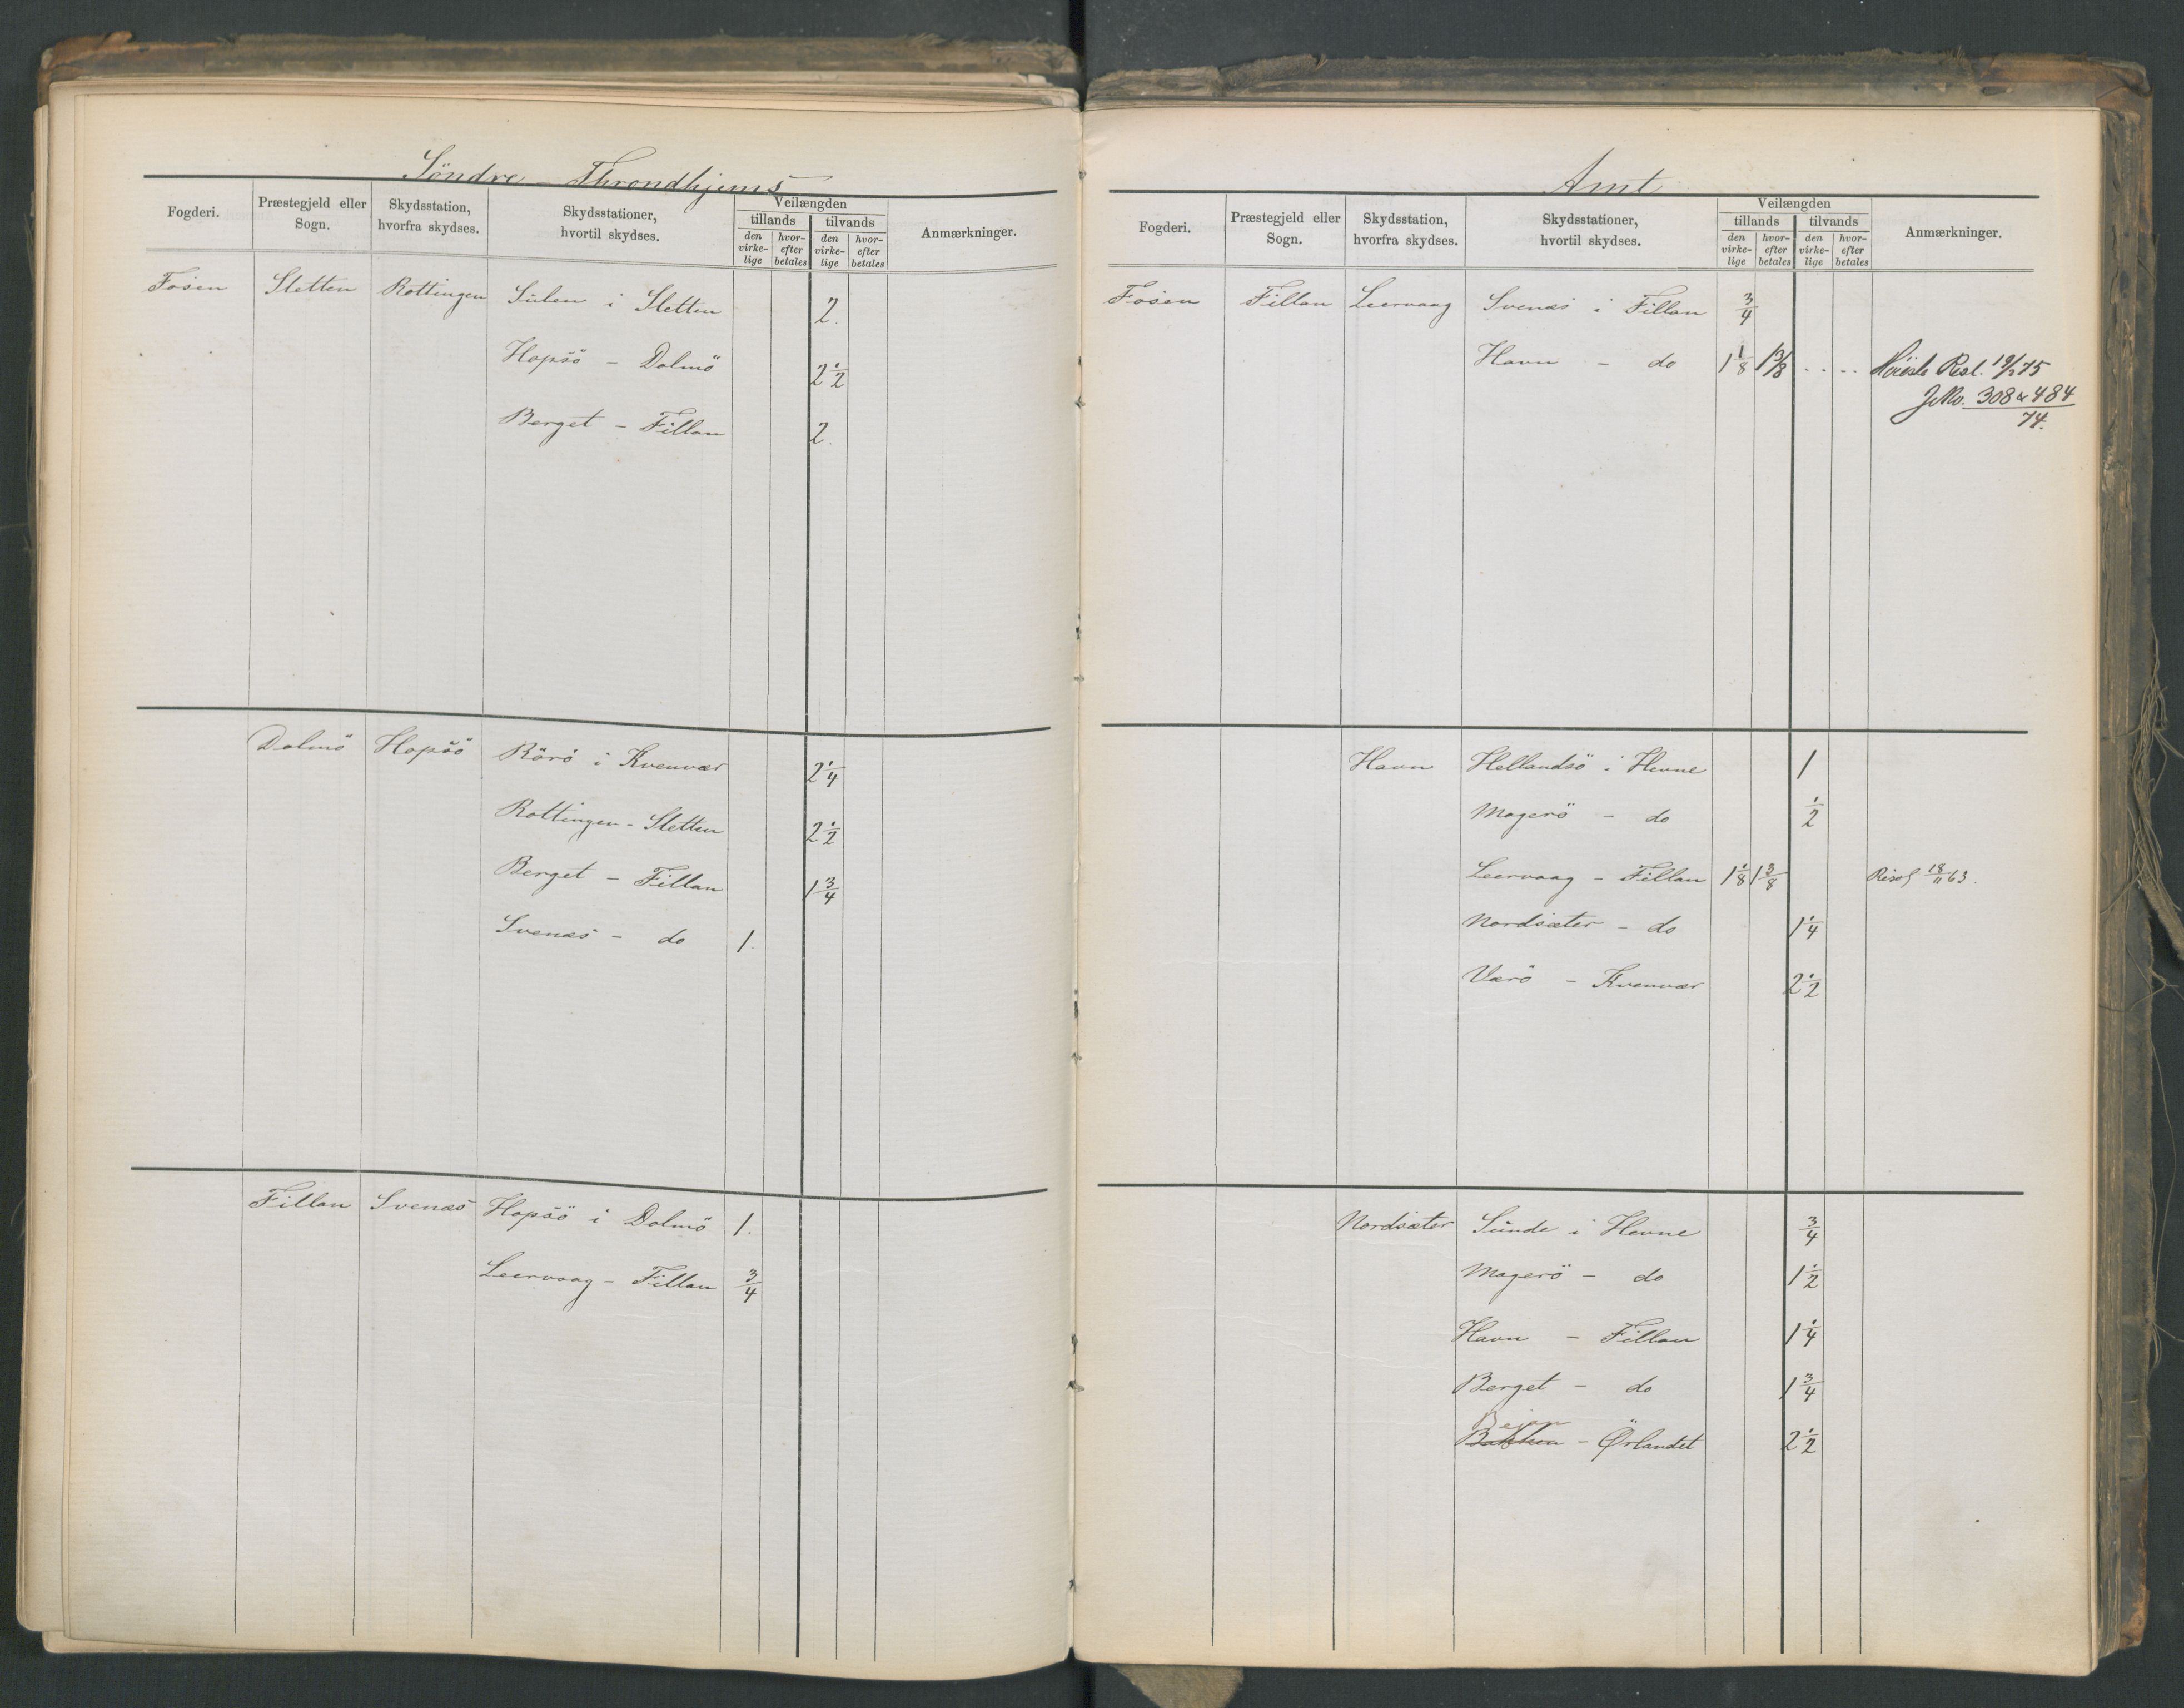 Söndre - Throndhjems
Fogderi. Præstegjeld eller Sogn. Skydsstation, hvorfra skydses. Skydsstationer, hvortil skydses. Veilængden tillands tilvands den virke-lige hvor-efter betales den virke-lige hvor-efter betales Anmærkninger.
Fosen Sletten Rottingen Sulen i Sletten 2.
Hopsö - Dolmö 2 1/2
Berget - Fillan 2.
Dolmö Hopsö Rörö i Kvenvær 2 1/4
Rottingen - Sletten 2 1/2
Berget - Fillan 1 3/4
Svenæs - do 1.
Fillan Svenæs Hopsö i Dolmö 1.
Leervaag - Fillan 3/4
Amt
Fogderi. Præstegjeld eller Sogn. Skydsstation, hvorfra skydses. Skydsstationer, hvortil skydses. Veilængden tillands tilvands den virke-lige hvor-efter betales den virke-lige hvor-efter betales Anmærkninger.
Fosen Fillan Leervaag Svenæs i Fillan 3/4
Havn - do 1 1/8 1 3/8 . . . . Høieste Resl. 19/2 75
JNo. 308 & 484
74.
Havn Hellandsö i Hevne 1
Magerö - do 1/2
Leervaag - Fillan 1 1/8 1 3/8 Resol 18/11 63.
Nordsæter - do 1 1/4
Værö - Kvenvær 2 1/2
Nordsæter Sunde i Hevne 3/4
Magerö - do 1 1/2
Havn - Fillan 1 1/4
Berget - do 1 3/4
Bejan
Bakken - Ørlandet 2 1/2